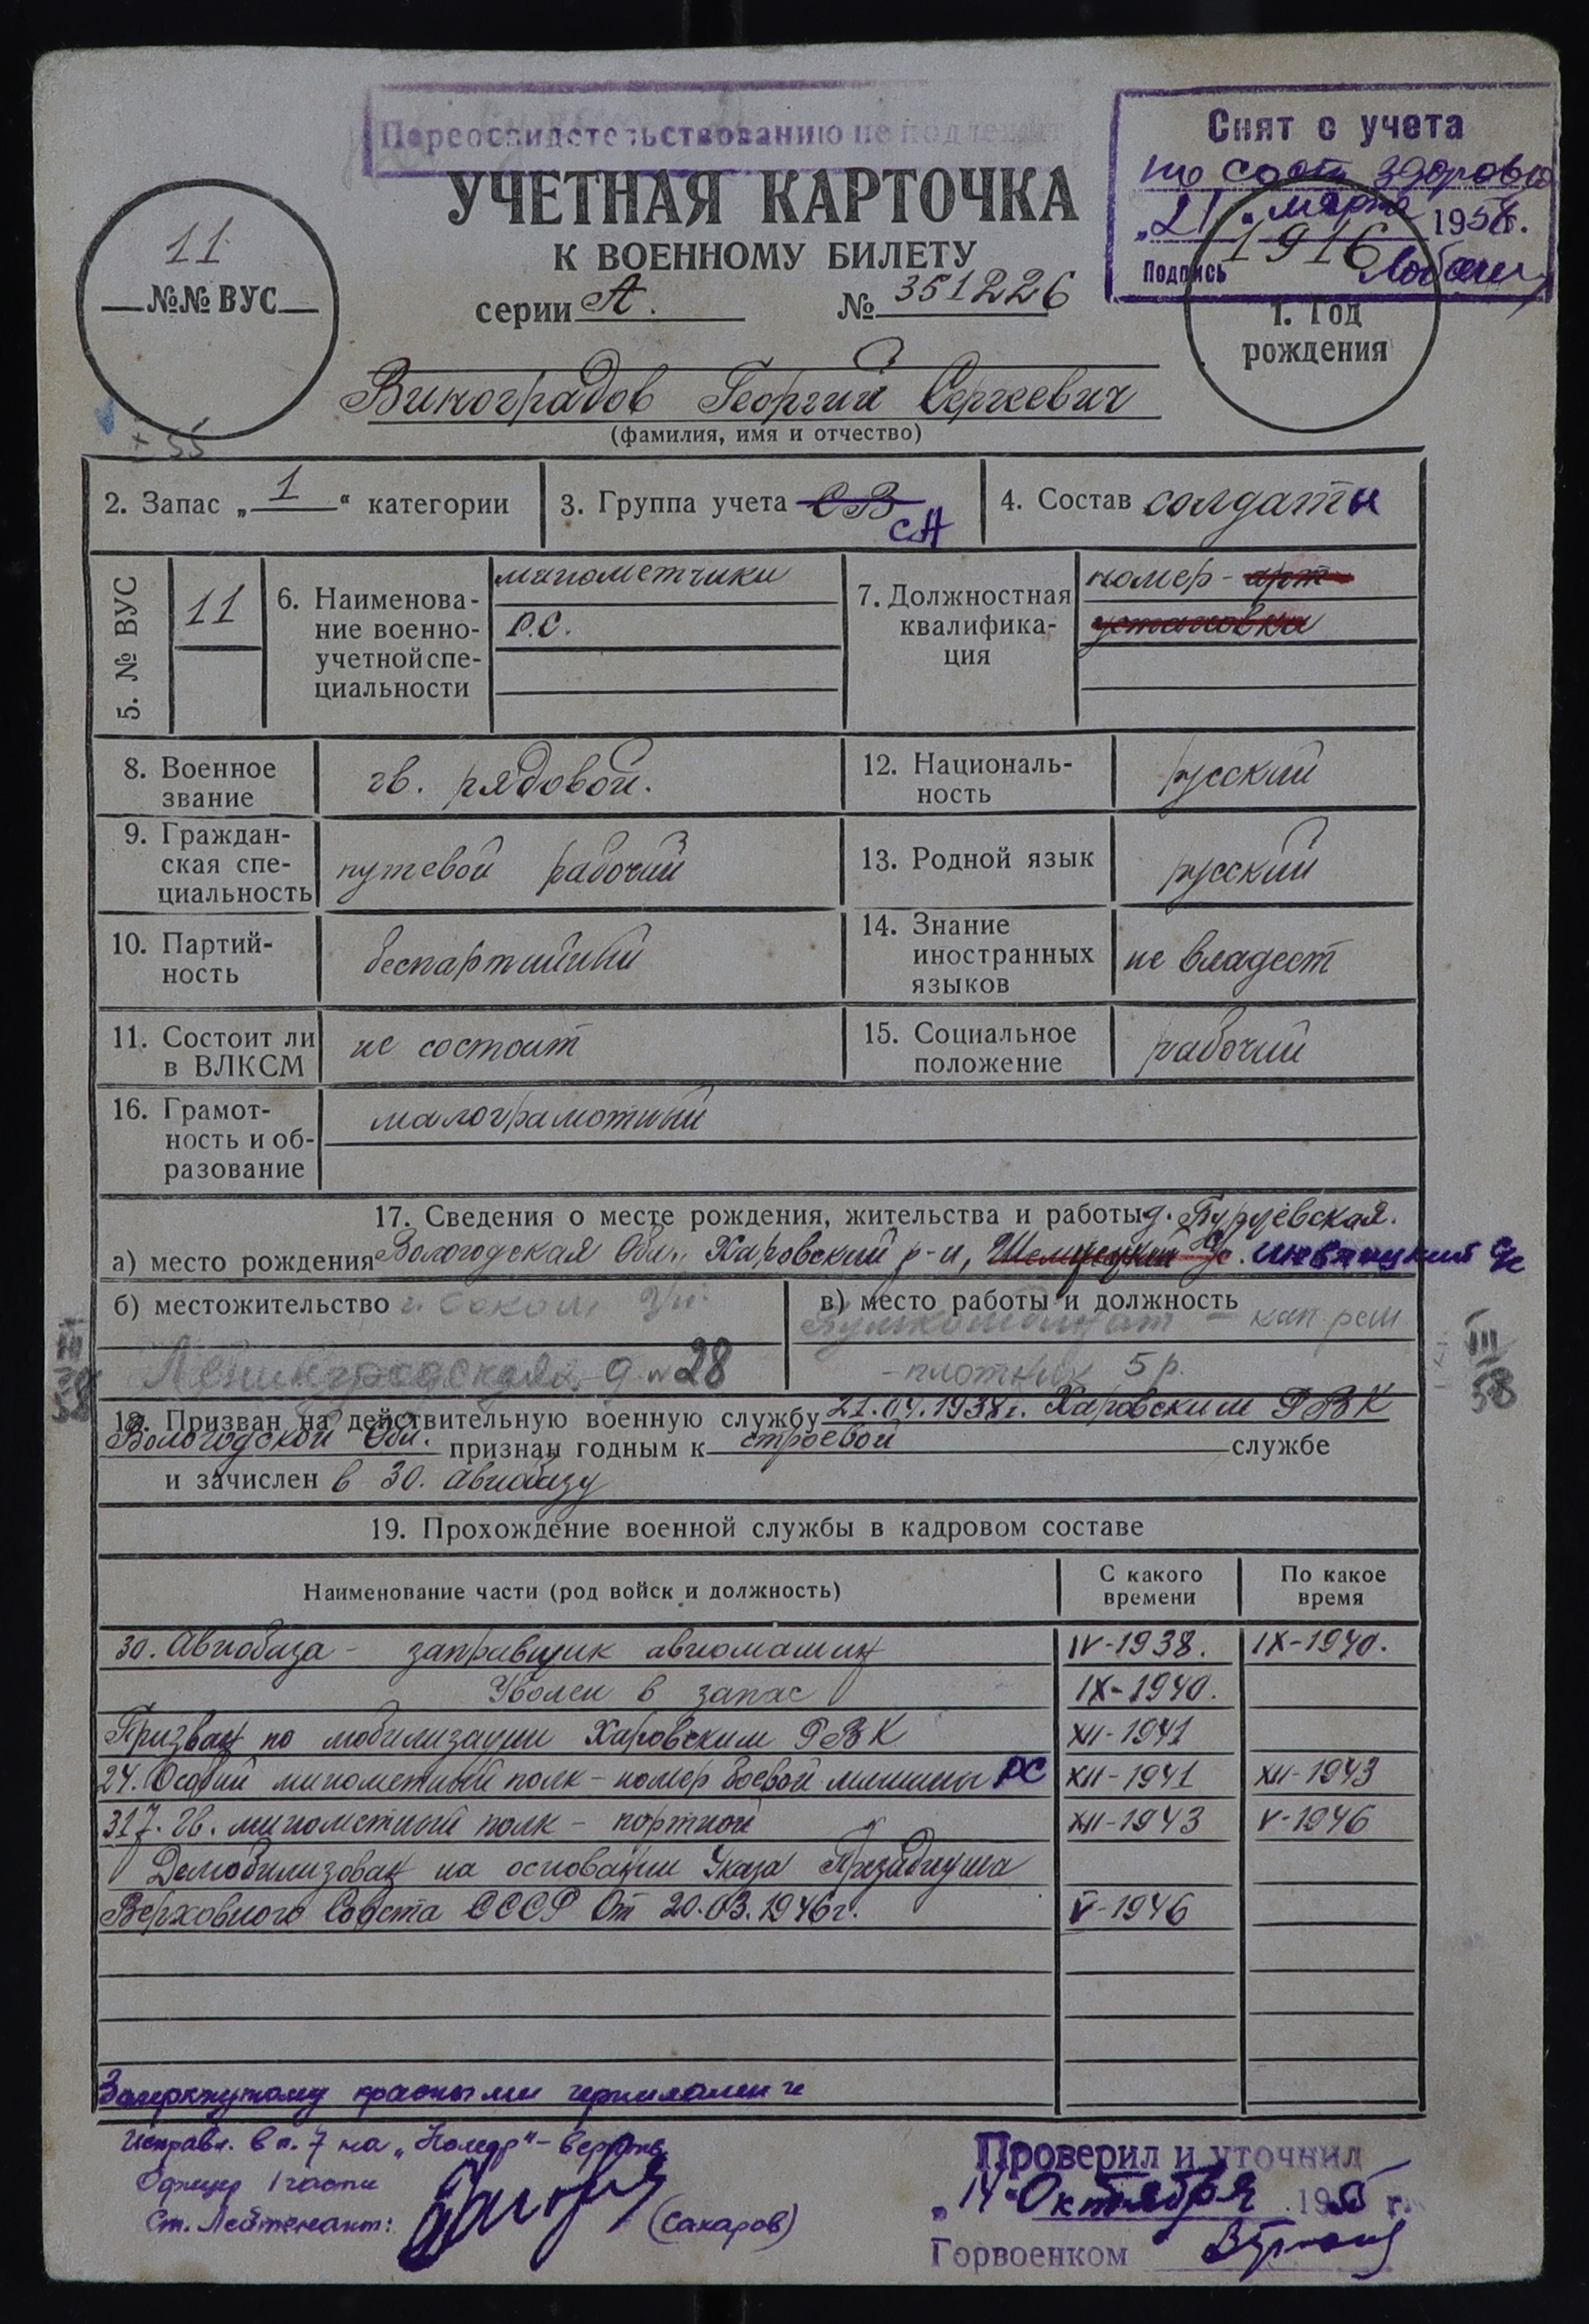 Переосвидетельствованию не подлежит
Снят с учета
по сост здоровья
„21“ марта 1958г.
Подпись
УЧЕТНАЯ КАРТОЧКА
К ВОЕННОМУ БИЛЕТУ
серии А. № 351226
11
№№ ВУС
1916
1. Год
рождения
Виноградов Георгий Сергеевич
(фамилия, имя и отчество)
+ 55
2. Запас „1“ категории
3. Группа учета СВ СА
4. Состав солдаты
5. № ВУС 11
6. Наименова-
ние военно-
учетной спе-
циальности
минометчики
Р.С.
7. Должностная
квалифика-
ция
номер - арт
установки
8. Военное
звание
гв. рядовой.
12. Националь-
ность
русский
9. Граждан-
ская спе-
циальность
путевой рабочий
13. Родной язык
русский
10. Партий-
ность
беспартийный
14. Знание
иностранных
языков
не владеет
11. Состоит ли
в ВЛКСМ
не состоит
15. Социальное
положение
рабочий
16. Грамот-
ность и об-
разование
малограмотный
17. Сведения о месте рождения, жительства и работы д.
а) место рождения Вологодская Обл., Харовский р-н,
б) местожительство г. Сокол
Ленинградская д. № 28
в) место работы и должность
- плотник 5 р.
III
58
III
58
18. Призван на действительную военную службу 21.04.1938г. Харовским РВК
Вологодской Обл. признан годным к строевой службе
и зачислен в 30. авиабазу
19. Прохождение военной службы в кадровом составе
Наименование части (род войск и должность)
С какого
времени
По какое
время
30. Авиобаза - заправщик авиомашин IV-1938. IX-1940.
Уволен в запас IX-1940.
Призван по мобилизации Харовским РВК XII-1941
24. Особый минометный полк - номер боевой машины РС XII-1941 XII-1943
317. гв. минометный полк - портной XII-1943 V-1946
Демобилизован на основании Указа Президиума
Верховного Совета СССР От 20.03.1946г. V-1946
Зачеркнутому красными чернилами и
исправл. в п. 7 на „Номер“ - верить
Офицер 1 части
Ст. Лейтенант: (Сахаров)
Проверил и уточнил
„14“ Октября 195 г.
Горвоенком